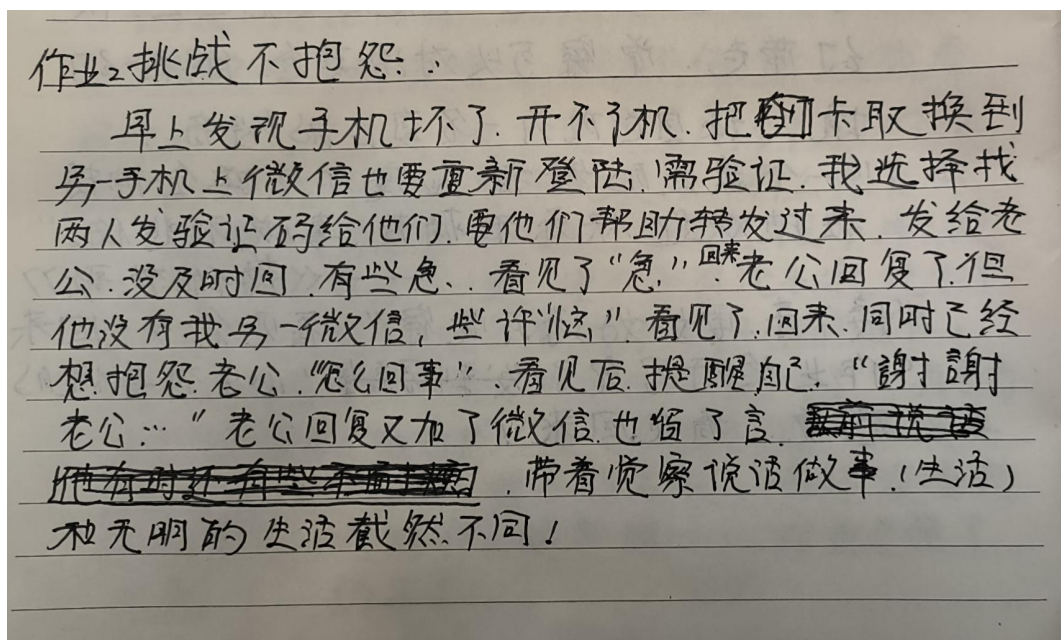 作业2挑战不抱怨:
早上发现手机坏了.开不了机.把卡取换到
另一手机上微信也要重新登陆.需验证.我选择找
两人发验证码给他们.要他们帮助转发过来.发给老
公.没及时回.有些急..看见了“急”回来老公回复了.但
他没有我另一微信,些许“恼”看见了.回来.同时已经
想抱怨.老公.“怎么回事”.看见后.提醒自己.“謝謝
老公…”老公回复又加了微信.也留了言.
.带着觉察说话做事.(生活)
和无明的生活截然不同!